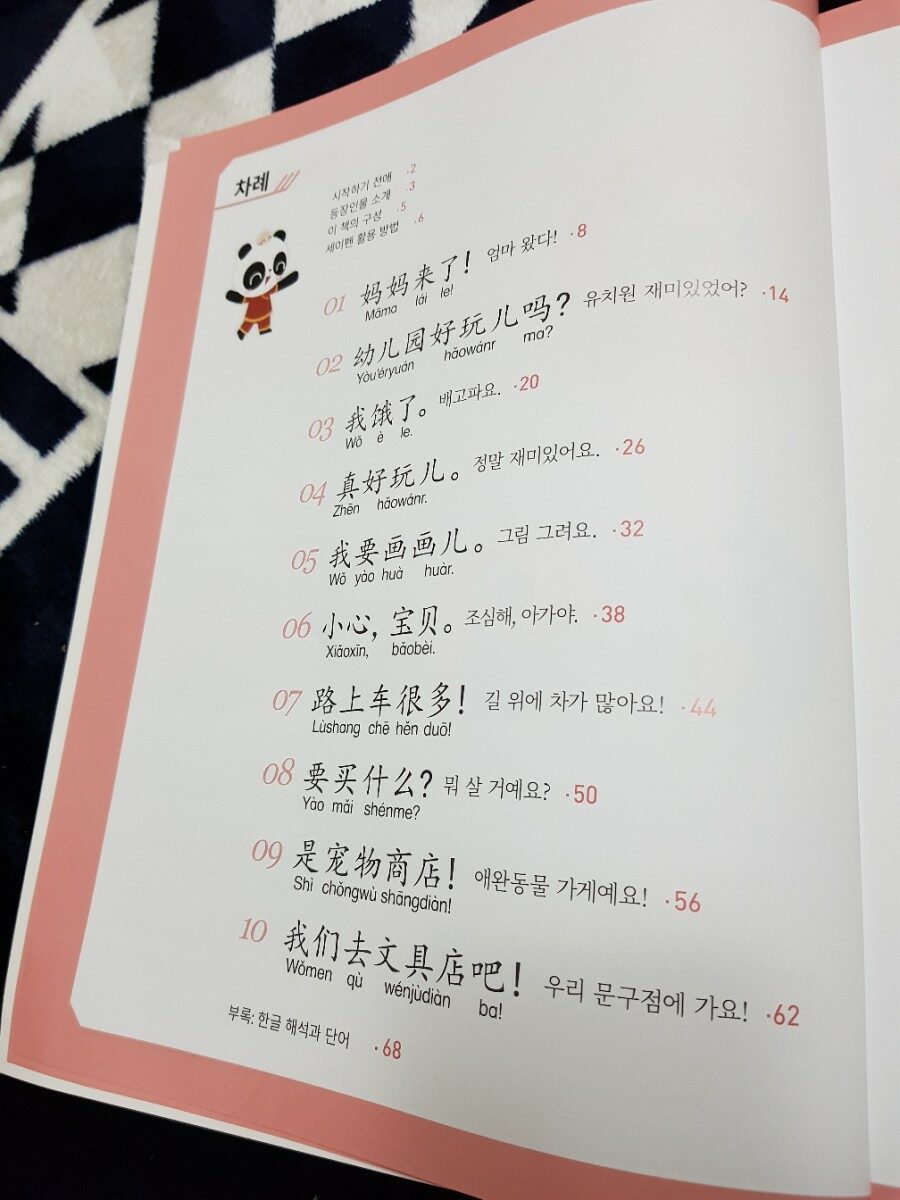 차례
시작하기 전에 ·2
등장인물 소개 ·3
이 책의 구성 ·5
세이펜 활용 방법 ·6
01 妈妈来了! 엄마 왔다! ·8
Māma lái le!
02 幼儿园好玩儿吗? 유치원 재미있었어? ·14
Yòu'éryuán hǎowánr ma?
03 我饿了。 배고파요. ·20
Wǒ è le.
04 真好玩儿。 정말 재미있어요. ·26
Zhēn hǎowánr.
05 我要画画儿。 그림 그려요. ·32
Wǒ yào huà huàr.
06 小心, 宝贝。 조심해, 아가야. ·38
Xiǎoxīn, bǎobèi.
07 路上车很多! 길 위에 차가 많아요! ·44
Lùshang chē hěn duō!
08 要买什么? 뭐 살 거예요? ·50
Yào mǎi shénme?
09 是宠物商店! 애완동물 가게예요! ·56
Shì chǒngwù shāngdiàn!
10 我们去文具店吧! 우리 문구점에 가요! ·62
Wǒmen qù wénjùdiàn ba!
부록: 한글 해석과 단어 ·68